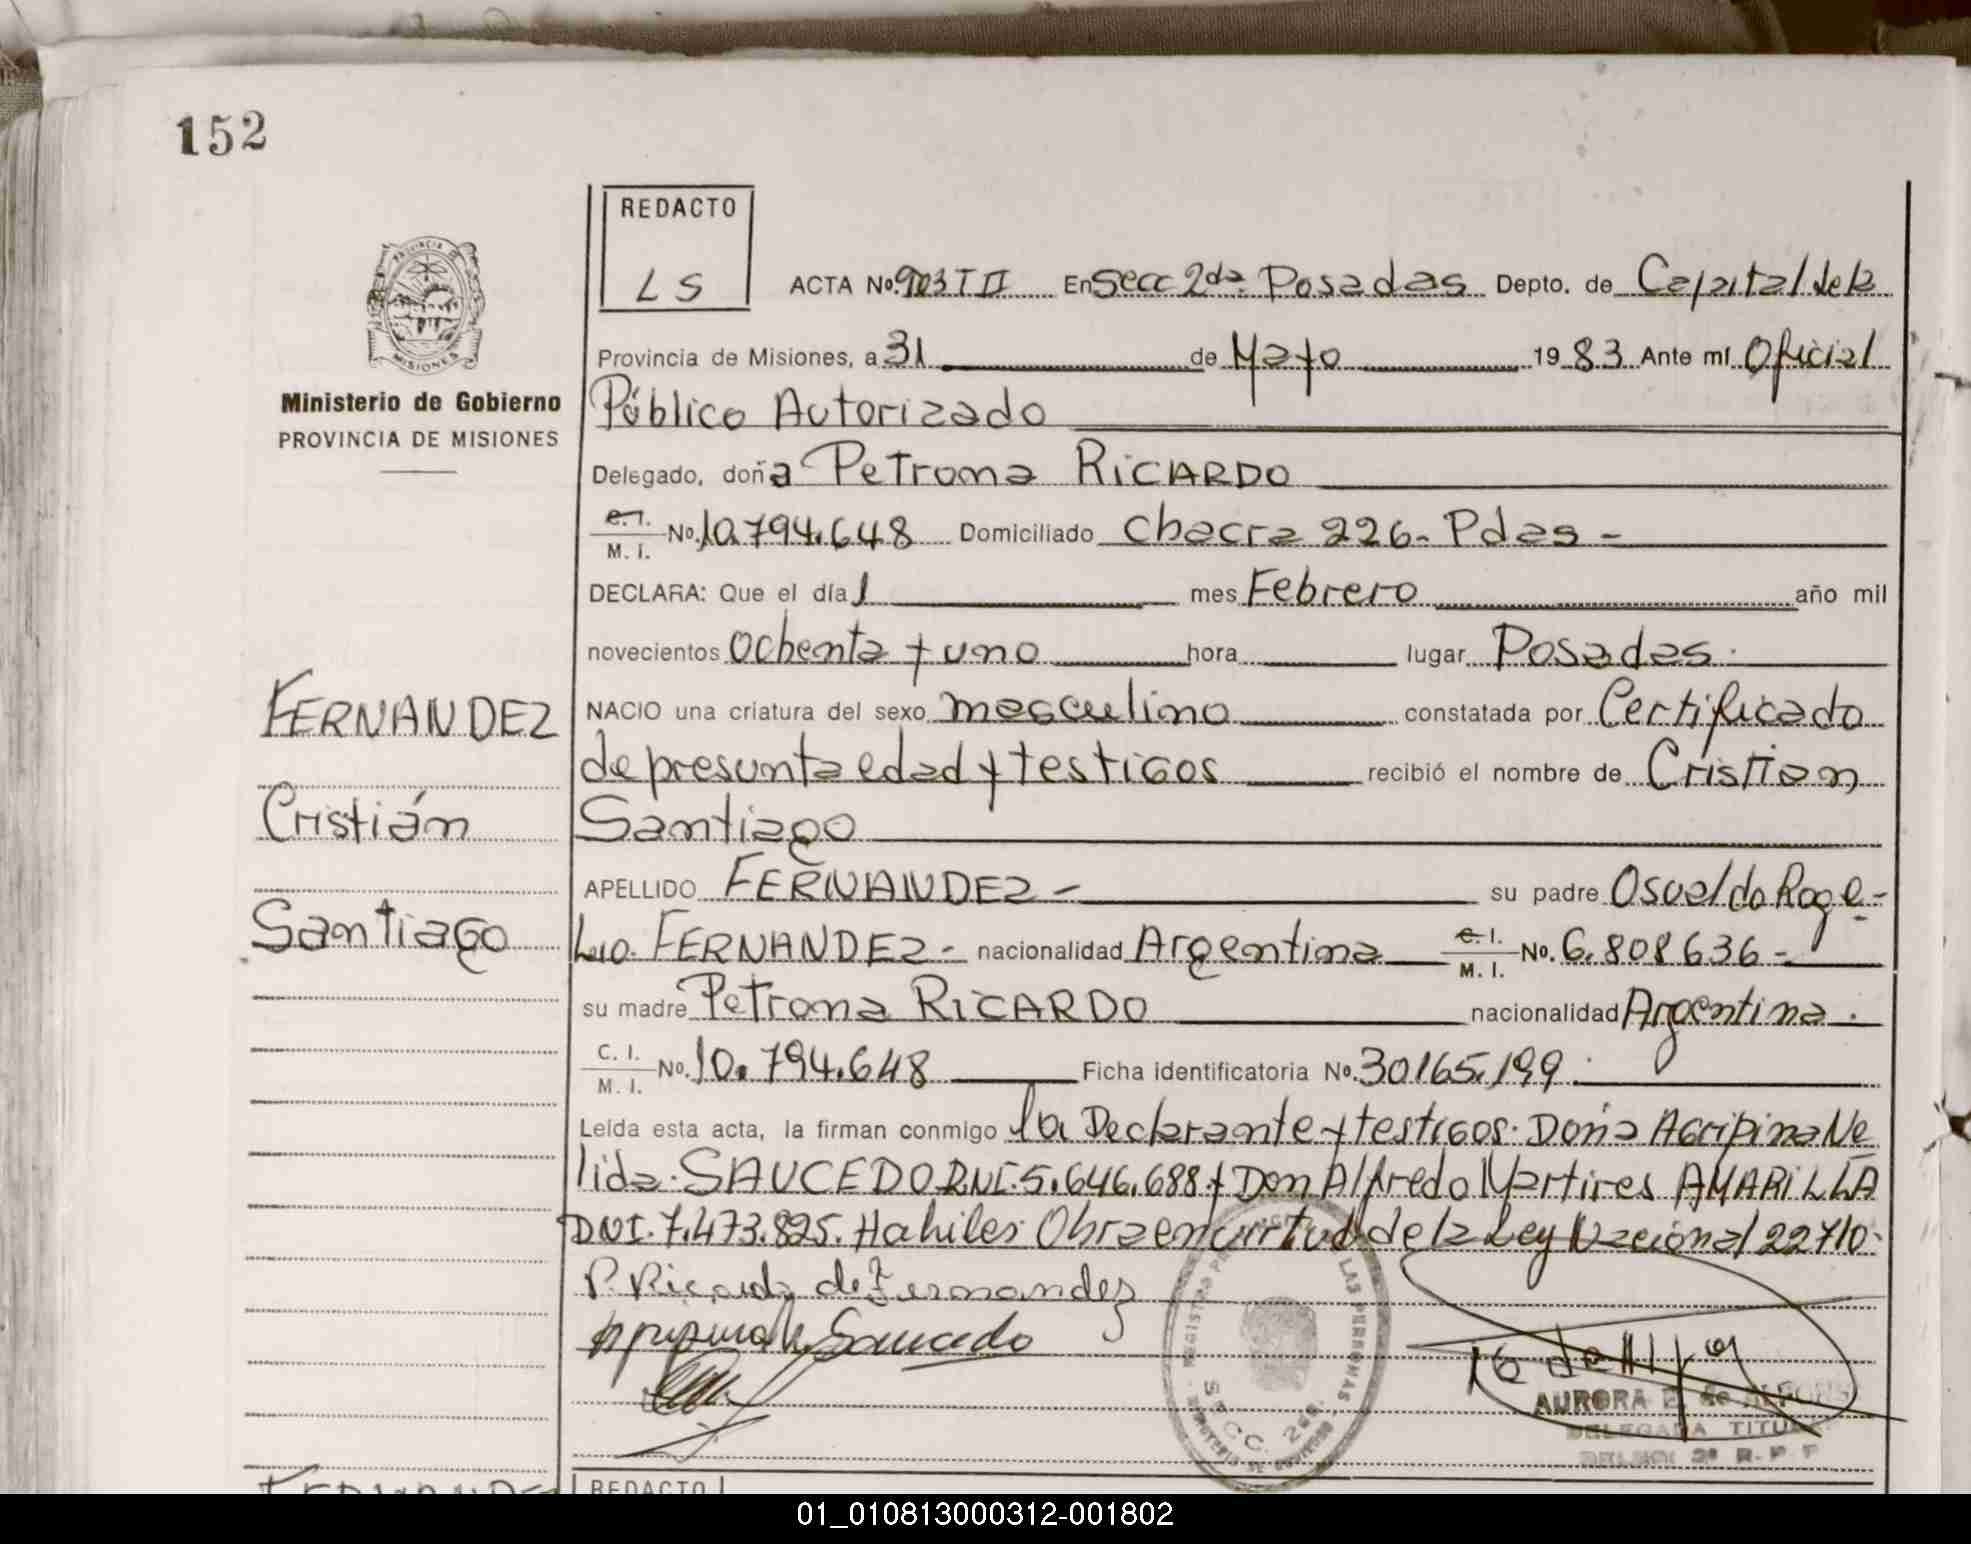 152
REDACTO
LS
ACTA No. 903 T II En Secc 2da. Posadas Depto. de Capital de la
Provincia de Misiones, a 31 de Mayo 1983 Ante mí Oficial
Público Autorizado
Delegado, doña Petrona RICARDO
C.I. M. I. No. 10.794.648 Domiciliado Chacra 226- Pdas -
DECLARA: Que el día 1 mes Febrero año mil
novecientos ochenta y uno hora lugar Posadas.
NACIO una criatura del sexo masculino constatada por Certificado
de presunta edad y testigos recibió el nombre de Cristian
Santiago
APELLIDO FERNANDEZ - su padre Osvaldo Roge-
Lio. FERNANDEZ - nacionalidad Argentina C. I. M. I. No. 6.808636-
su madre Petrona RICARDO nacionalidad Argentina.
C. I. M. I. No. 10.794.648 Ficha identificatoria No. 30165.199.
Leída esta acta, la firman conmigo la Declarante y testigos. Doña Agripina Ne
lida. SAUCEDO DNI. 5.646.688 y Don Alfredo Martires AMARILLA
DNI. 7.473.825. Habiles Obra en virtud de la Ley Nacional 22710.
P. Ricardo de Fernandez
Saucedo
PROVINCIA DE
MISIONES
Ministerio de Gobierno
PROVINCIA DE MISIONES
FERNANDEZ
Cristián
Santiago
LAS PERSONAS
SECC. 2da.
AURORA E. de
DELEGADA TITULAR
REDACTO
01_010813000312-001802